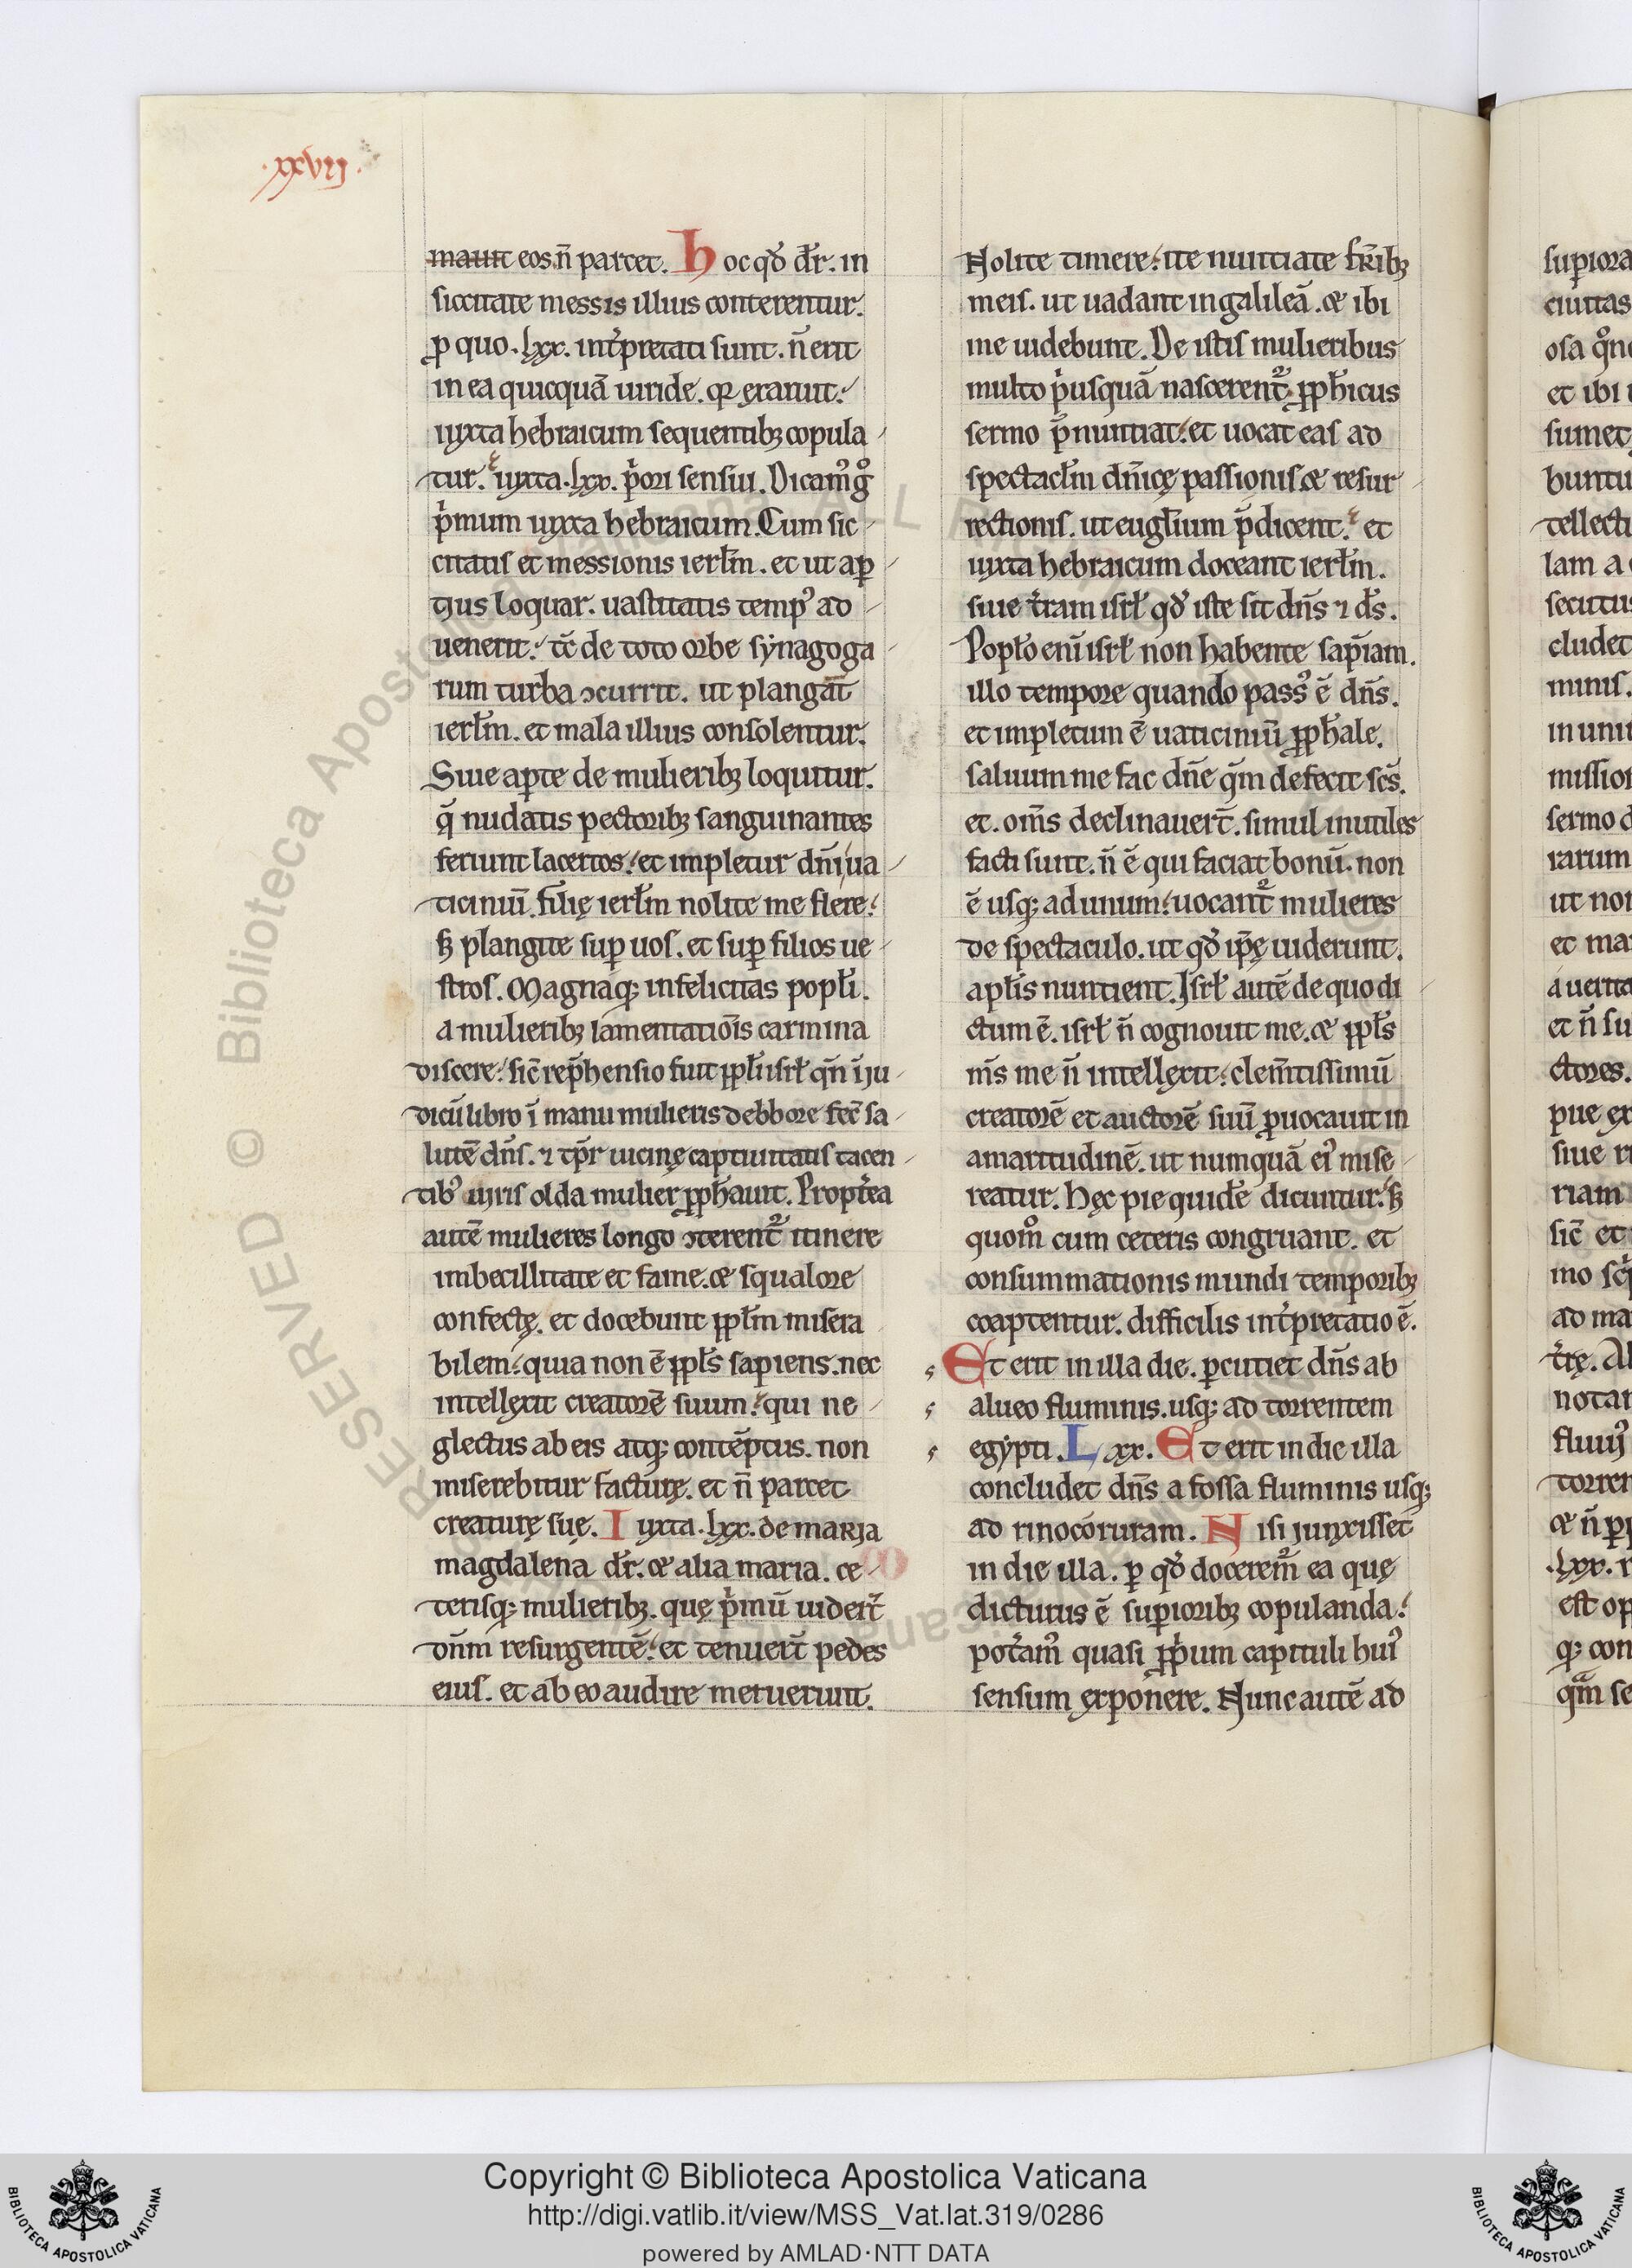 .xxvij.
mauit eos n̄ parcet. Hoc qđ dr̄. in
siccitate messis illius conterentur.
ꝓ quo .lxx. int̾pretati sunt. n̄ erit
in ea quicquā uiride. qꝛ exaruit.
iuxta hebraicum sequentibꝫ copula
tur. iuxta .lxx. p̾ori sensui. Dicam᷒ gͦ
p̾mum iuxta hebraicum. Cum sic
citatis et messionis ierłm. et ut aꝑ
tius loquar. uastitatis temp᷒ ad
uenerit. tc̄ de toto orbe synagoga
rum turba ↄcurrit. ut plangat
ierłm. et mala illius consolentur.
Siue aꝑte de mulieribꝫ loquitur.
q̄ nudatis pectoribꝫ sanguinantes
feriunt lacertos. et impletur dn̄i ua
ticiniū. filię ierłm nolite me flere.
sꝫ plangite suꝑ uos. et suꝑ filios ue
stros. Magnaqꝫ infelicitas popłi.
a mulieribꝫ lamentatiōis carmina
discere. sic̄ rep̄hensio fuit ppłi isrł qn̄ ī iu
dicū libro ī manu mulieris debbore fec̄ sa
lutē dn̄s. ⁊ tp̄r uicinę captiuitatis tacen
tib᷒ uiris olda mulier ꝓph̄auit. Propt̾ea
autē mulieres longo ↄterent᷑ itinere
imbecillitate et fame. æ squalore
confectę. et docebunt ppłm misera
bilem. quia non ē ppłs sapiens. nec
intellexit creatorē suum. qui ne
glectus ab eis atqꝫ contēptus. non
miserebitur facturę. et n̄ parcet
creaturę suę. Iuxta .lxx. de maria
magdalena dr̄. æ alia maria. ce
terisqꝫ mulieribꝫ. quę p̾mū uider̄t
dn̄m resurgentē. et tenuer̄t pedes
eius. et ab eo audire meruerunt.
Nolite timere. ite nuntiate fr̄ibꝫ
meis. ut uadant in galileā. æ ibi
me uidebunt. De istis mulieribus
multo p̾usquā nascerent᷑ ꝓph̄icus
sermo p̄nuntiat. et uocat eas ad
spectacłm dn̄icę passionis. æ resur
rectionis. ut eugłium p̄dicent. et
iuxta hebraicum doceant ierłm.
siue t̾ram isrł qđ iste sit dn̄s ⁊ ds̄.
Popło enī isrł non habente sap̄iam.
illo tempore quando pass᷒ ē dn̄s.
et impletum ē uaticiniū ꝓph̄ale.
saluum me fac dn̄e qm̄ defecit sc̄s.
et. om̄s declinauer̄t. simul inutiles
facti sunt. n̄ ē qui faciat bonū. non
ē usqꝫ ad unum. uocant᷑ mulieres
de spectaculo. ut qđ ip̄ę uiderunt.
apłis nuntient. Isrł autē de quo di
ctum ē. isrł n̄ cognouit me. æ ppłs
ms̄ me n̄ intellexit. clem̄tissimū
creatorē et auctorē suū ꝓuocauit in
amaritudinē. ut numquā ei᷒ mise
reatur. Hęc pie quidē dicuntur. sꝫ
quomͦ cum ceteris congruant. et
consummationis mundi temporibꝫ
coaptentur. difficilis int̾pretatio ē.
Et erit in illa die. ꝑcutiet dn̄s ab
alueo fluminis. usqꝫ ad torrentem
egypti. Lxx. Et erit in die illa
concludet dn̄s a fossa fluminis usqꝫ
ad rinocoruram. Nisi iunxisset
in die illa. ꝑ qđ docerem᷒ ea quę
dicturus ē suꝑioribꝫ copulanda.
pot̾am᷒ quasi ꝓp̾um capituli hui᷒
sensum exponere. Nunc autē ad
Copyright © Biblioteca Apostolica Vaticana
http://digi.vatlib.it/view/MSS_Vat.lat.319/0286
powered by AMLAD·NTT DATA